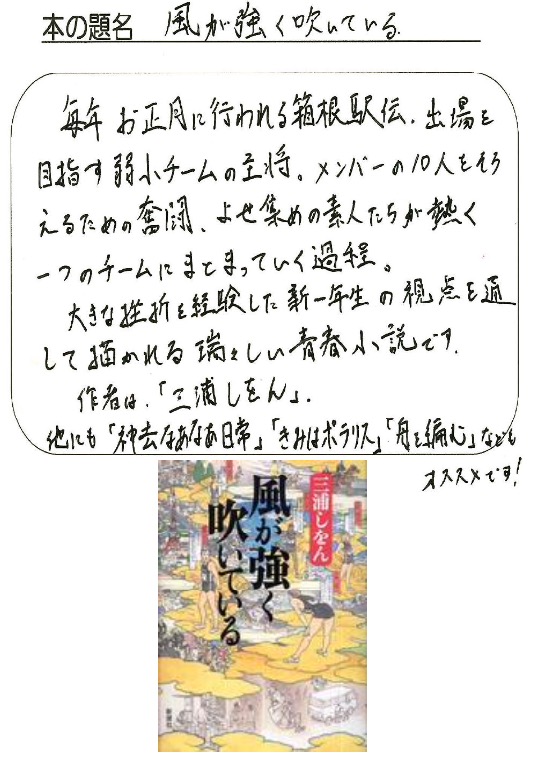 本の題名 風が強く吹いている.
毎年お正月に行われる箱根駅伝.出場を
目指す弱小チームの主将。メンバーの10人をそろ
えるための奮闘、よせ集めの素人たちが熱く
一つのチームにまとまっていく過程。
大きな挫折を経験した新一年生の視点を通
して描かれる瑞々しい青春小説です.
作者は、「三浦しをん」.
他にも「神去なあなあ日常」「きみはポラリス」「舟を編む」なども
オススメです!
三浦しをん
風が強く
吹いている
新潮社